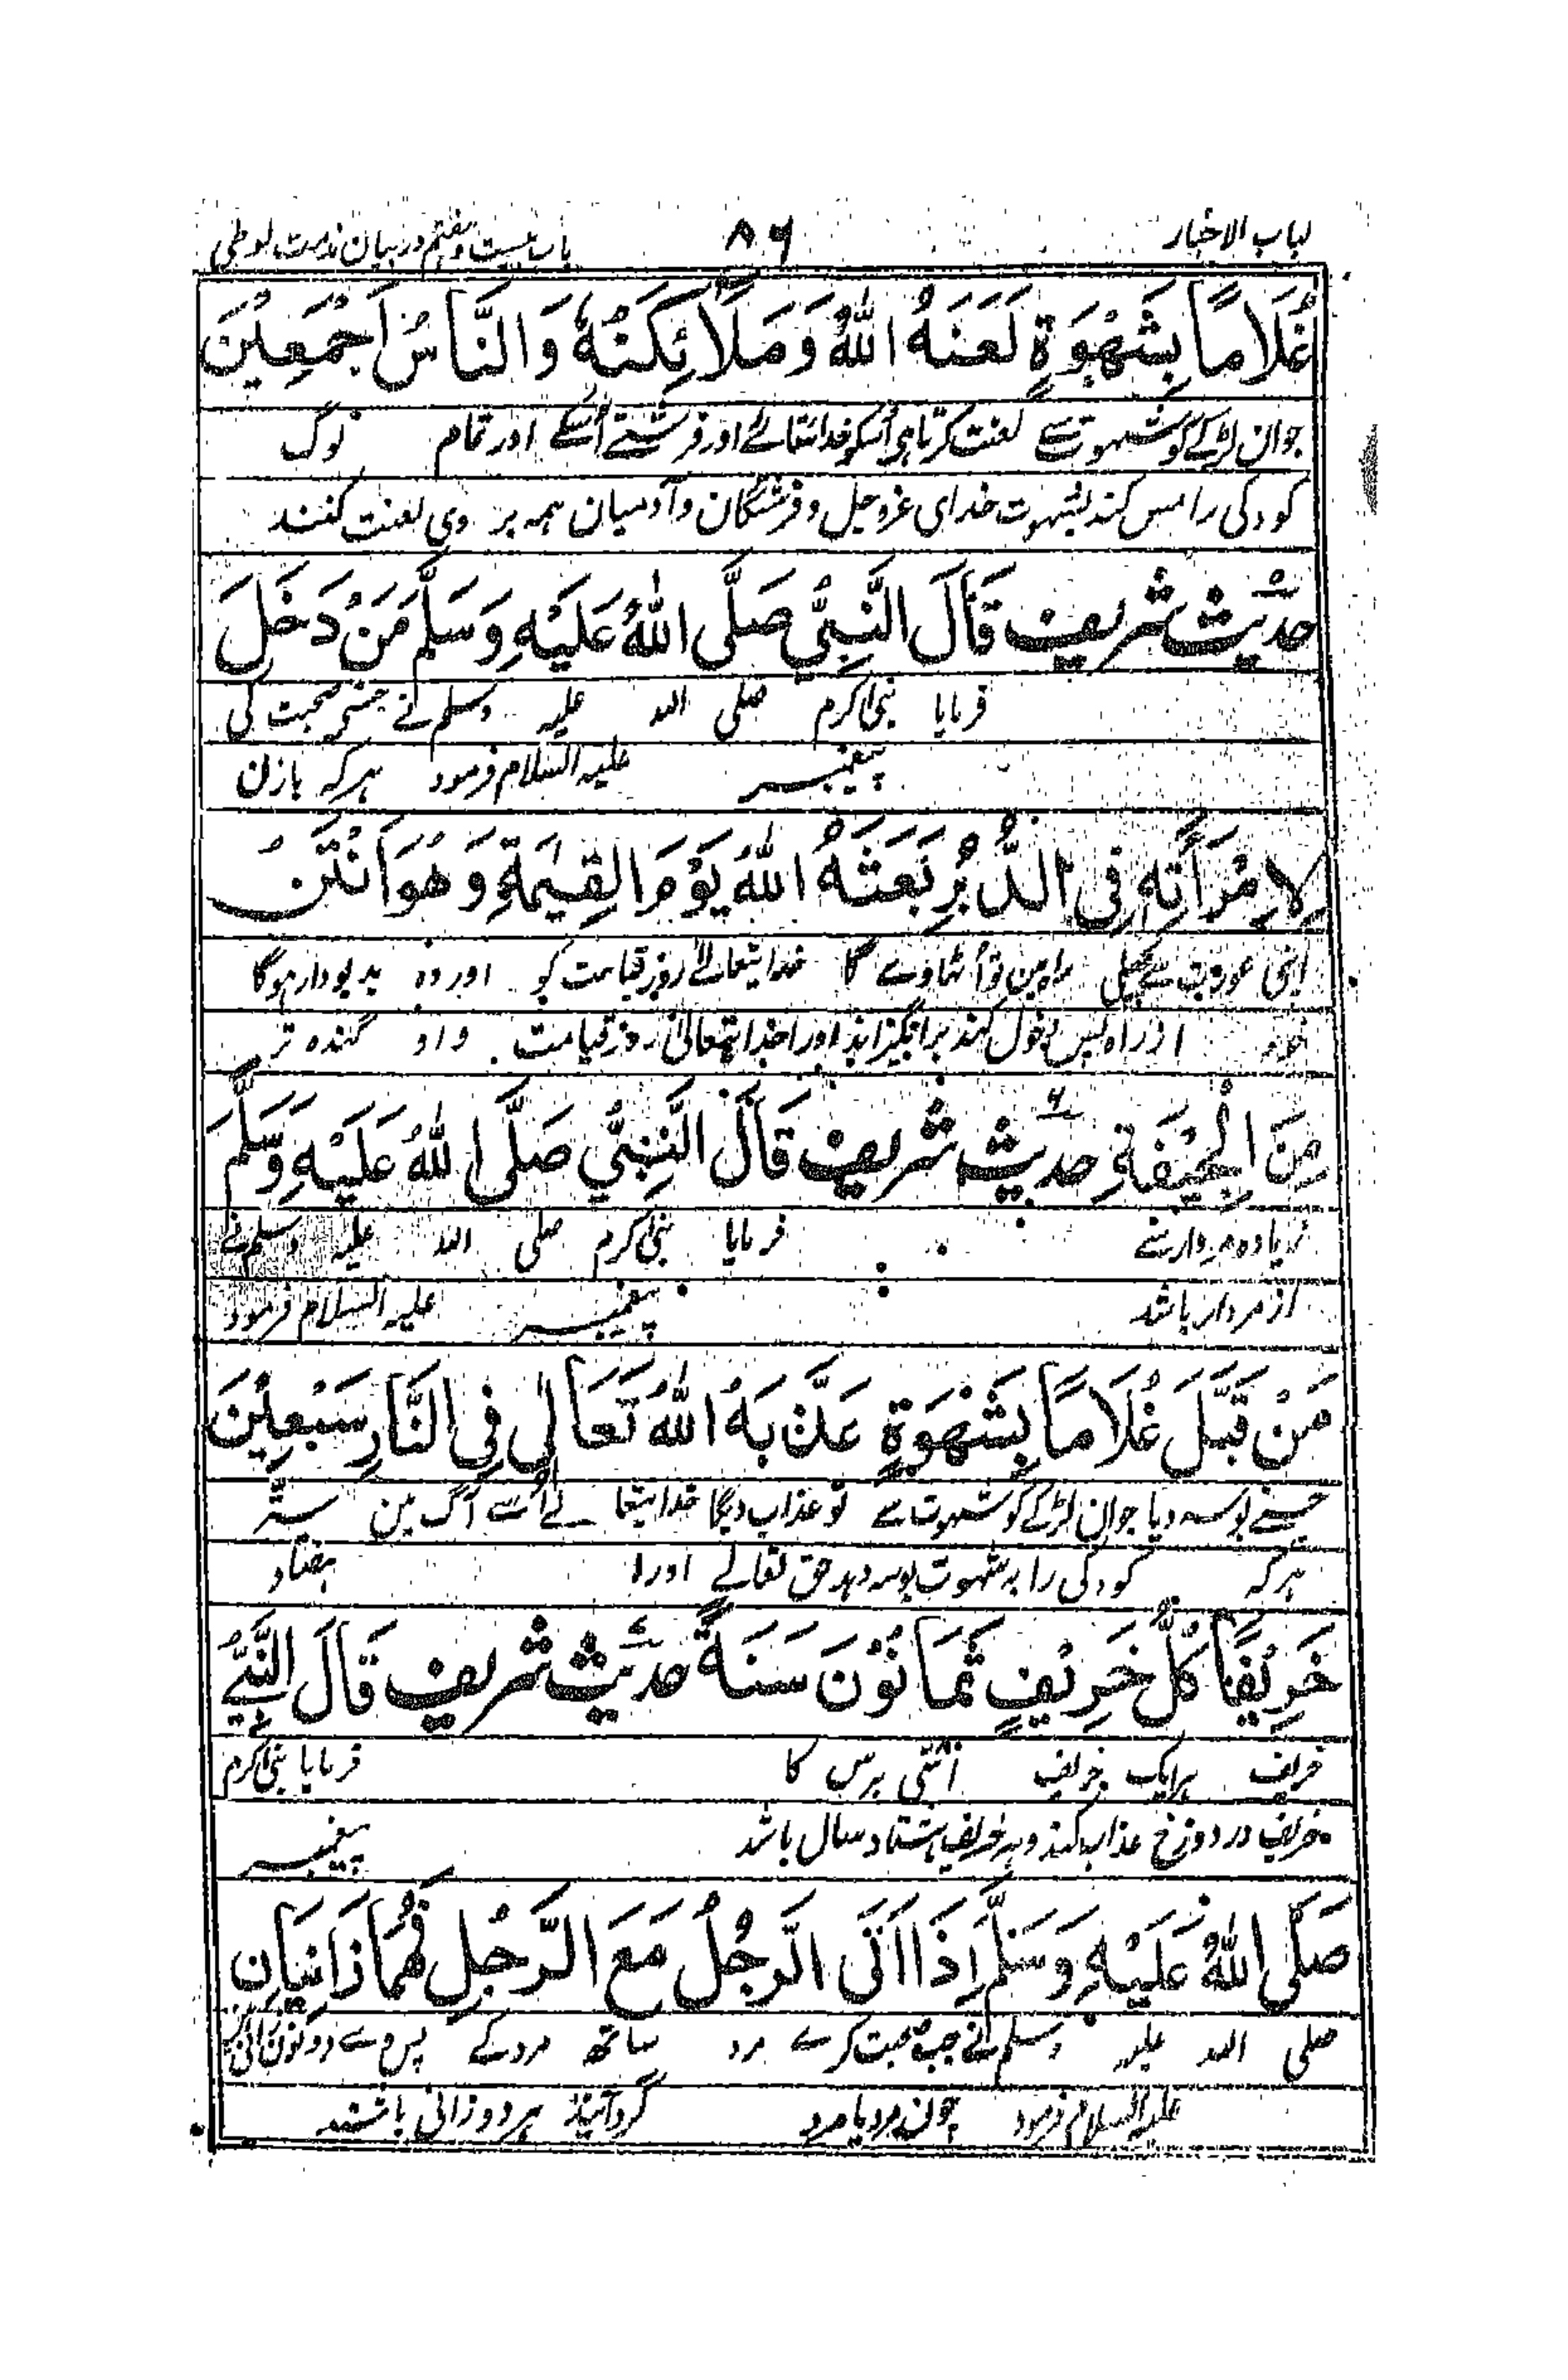 لباب الاخبار ۸۶ باب بیست و ہفتم در بیان مذمت لوطی
غُلَامًا بِشَهْوَةٍ لَعَنَهُ اللّٰهُ وَمَلَائِكَتُهُ وَالنَّاسُ اَجْمَعِيْنَ
جوان لڑکے کو شہوت سے لعنت کرتا ہی اُسکو خدایتعالے اور فرشتے اُسکے اور تمام لوگ
کودکی را مس کند بشہوت خدای عزوجل و فرشتگان و آدمیان ہمہ بر وی لعنت کنند
حدیث شریف قَالَ النَّبِيُّ صَلَّى اللّٰهُ عَلَيْهِ وَسَلَّمَ مَنْ دَخَلَ
فرمایا نبی اکرم صلی اللہ علیہ وسلم نے جسنے صحبت کی
پیغمبر علیہ السلام فرمود ہرکہ بازن
لِاِمْرَأَتِهِ فِي الدُّبُرِ بَعَثَهُ اللّٰهُ يَوْمَ الْقِيٰمَةِ وَهُوَ اَنْتَنُ
اپنی عورت سے پچھلی راہ مین تو اُٹھاوے گا خدایتعالے روز قیامت کو اور وہ بدبودار ہوگا
خود از راہ پس دخول کند برانگیزاند اورا خدایتعالیٰ روز قیامت و او گندہ تر
مِنَ الْجِيْفَةِ حدیث شریف قَالَ النَّبِيُّ صَلَّى اللّٰهُ عَلَيْهِ وَسَلَّمَ
زیادہ مردار سے فرمایا نبی اکرم صلی اللہ علیہ وسلم نے
از مردار باشد پیغمبر علیہ السلام فرمود
مَنْ قَبَّلَ غُلَامًا بِشَهْوَةٍ عَذَّبَهُ اللّٰهُ تَعَالٰى فِي النَّارِ سَبْعِيْنَ
جسنے بوسہ دیا جوان لڑکے کو شہوت سے تو عذاب دیگا خدایتعالے اُسے آگ مین ستّر
ہرکہ کودکی را بہ شہوت بوسہ دہد حق تعالے اورا ہفتاد
خَرِيْفًا كُلُّ خَرِيْفٍ ثَمَانُوْنَ سَنَةً حدیث شریف قَالَ النَّبِيُّ
خریف ہرایک خریف اسّی برس کا فرمایا نبی اکرم نے
خریف در دوزخ عذاب کند و ہر خریف ہشتاد سال باشد پیغمبر
صَلَّى اللّٰهُ عَلَيْهِ وَسَلَّمَ اِذَا اَتَى الرَّجُلُ مَعَ الرَّجُلِ فَهُمَا زَانِيَانِ
صلی اللہ علیہ وسلم نے جب صحبت کرے مرد ساتھ مرد کے پس وے دونون
علیہ السلام فرمود چون مرد با مرد گرد آیند ہر دو زانی باشند